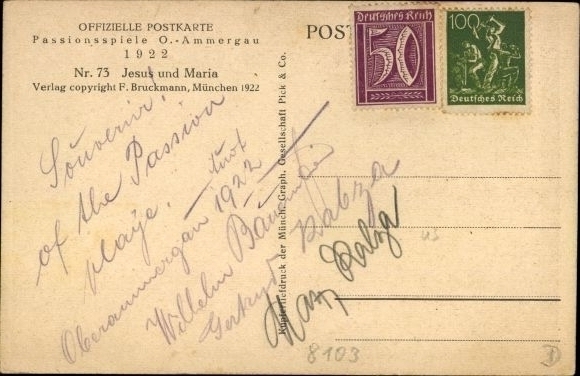 OFFIZIELLE POSTKARTE
Passionsspiele O.-Ammergau
1922
Nr. 73 Jesus und Maria
Verlag copyright F. Bruckmann, München 1922
POST
Deutsches Reich
50
100
Deutsches Reich
Kupfertiefdruck der Münch. Graph. Gesellschaft Pick & Co.
Souvenir!
of the Passion
playe.
Oberammergau 1922
Wilhelm
8103